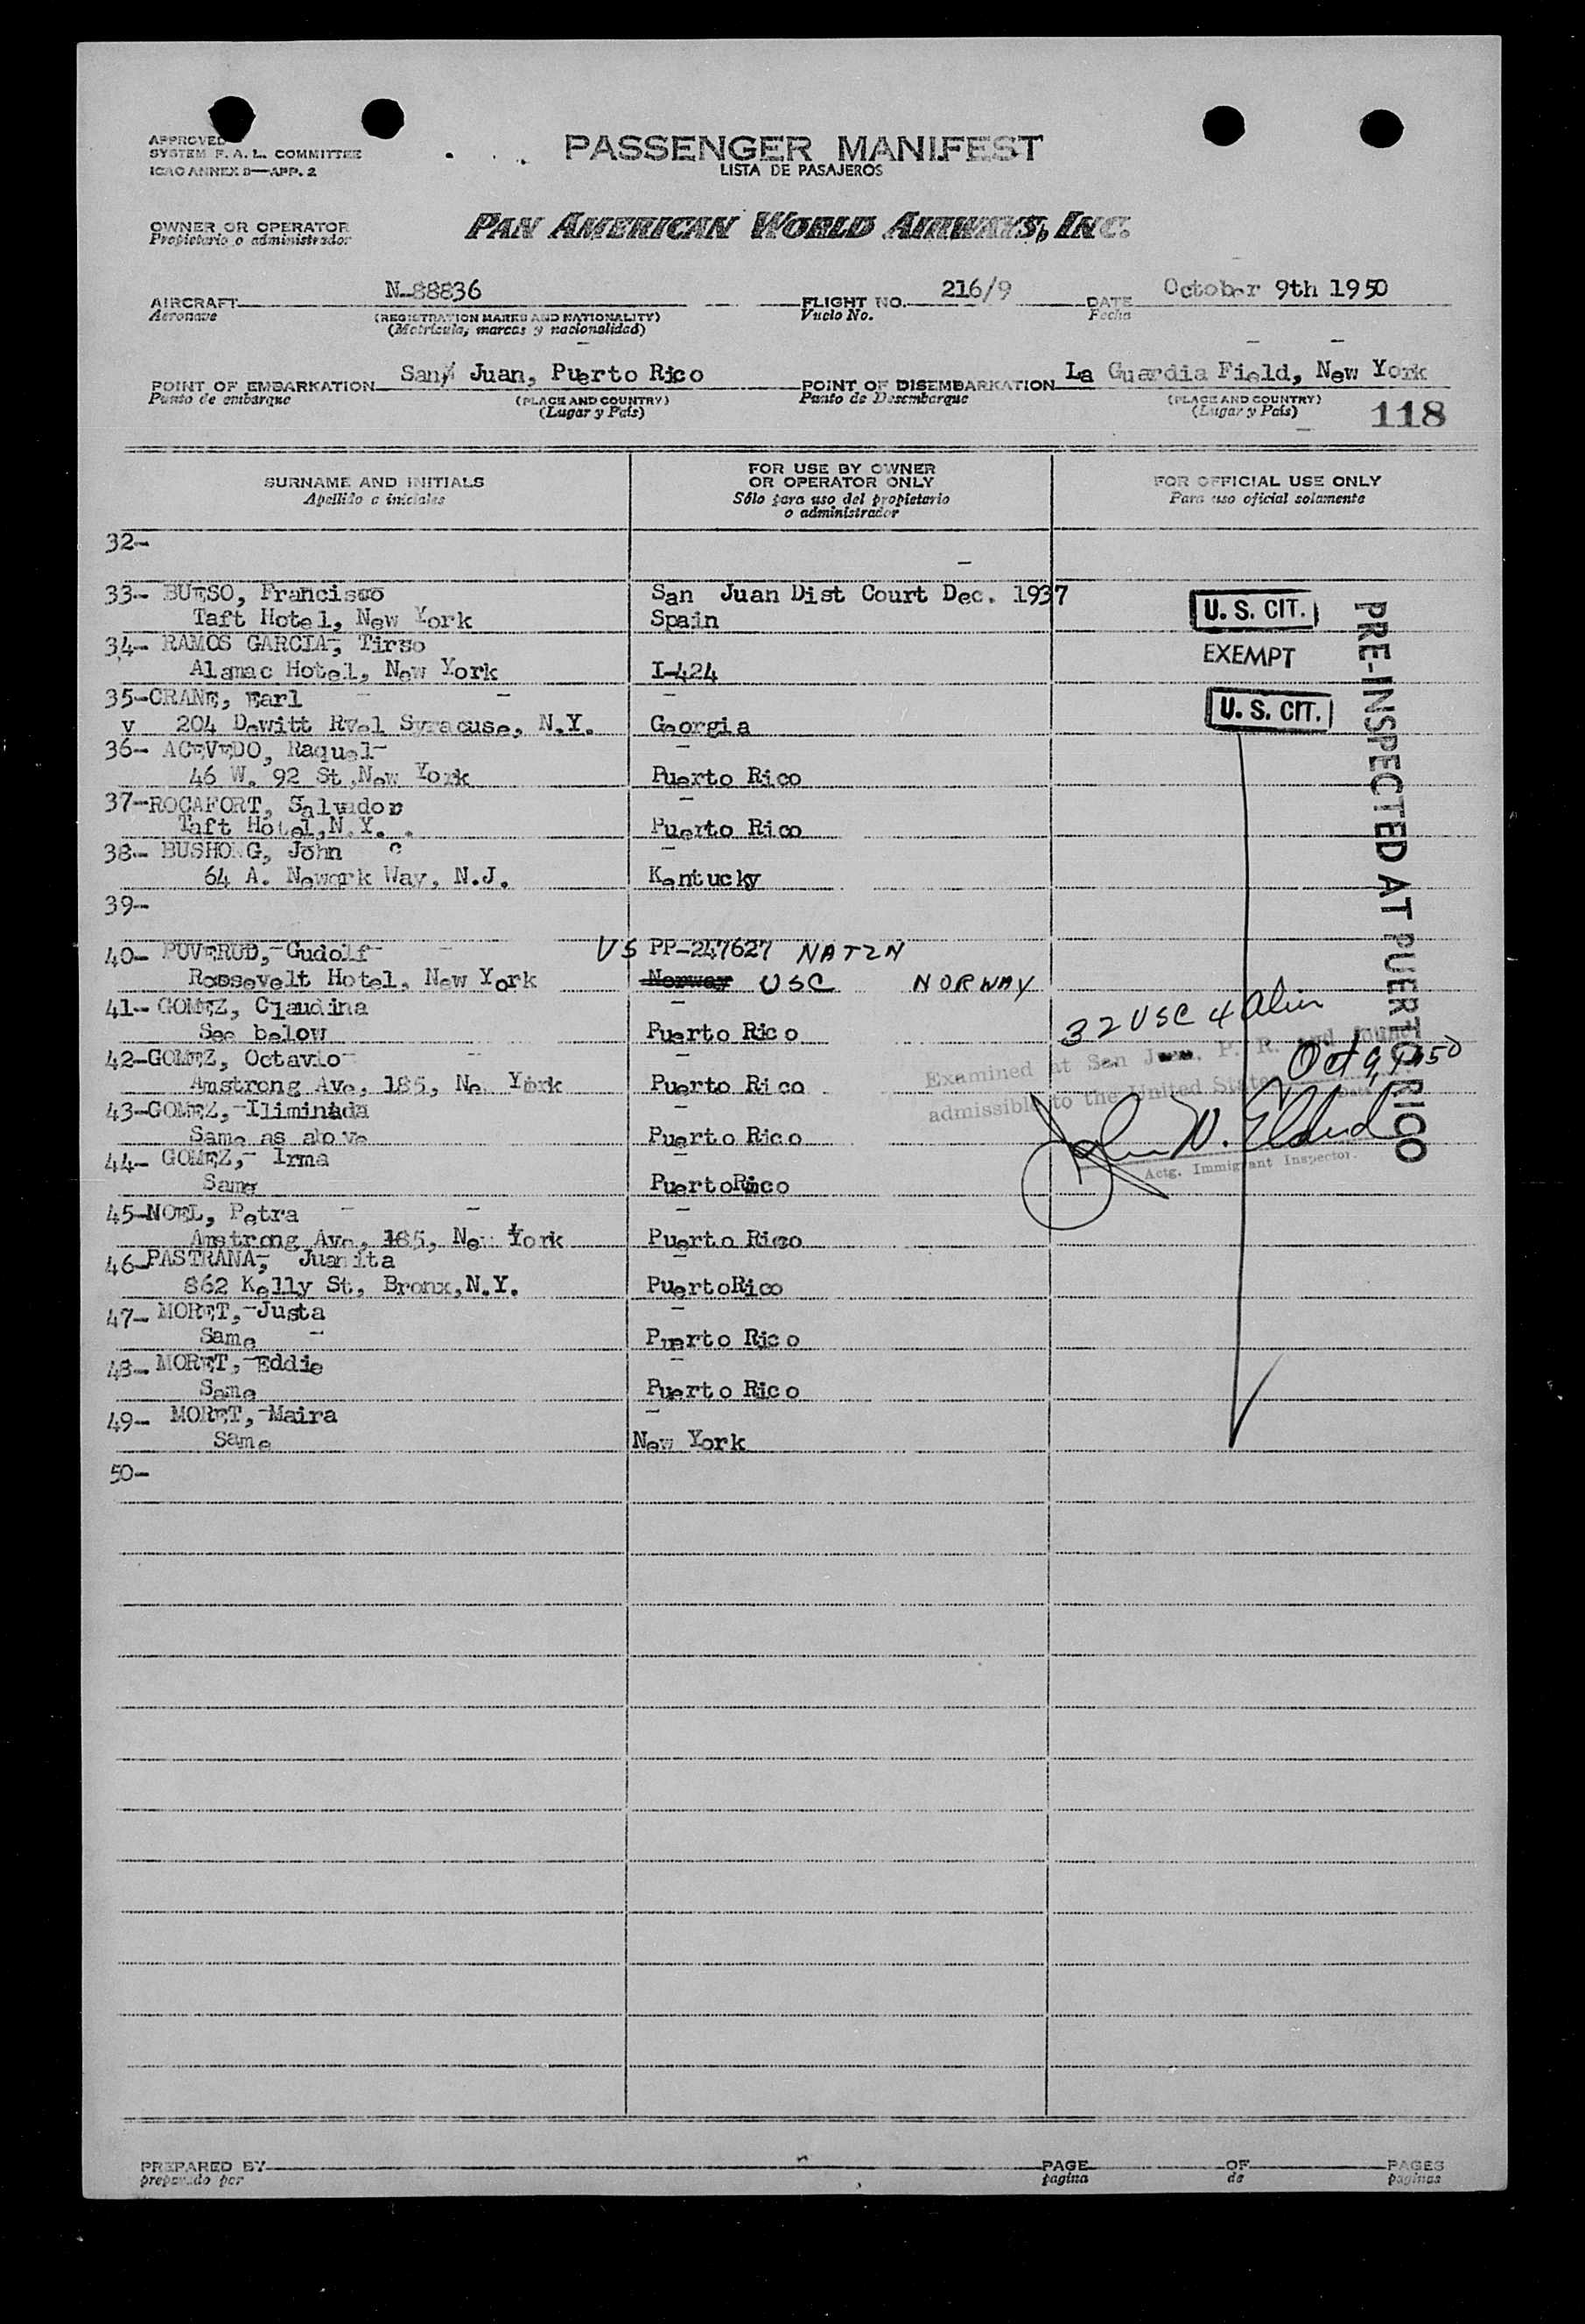 APPROVED
SYSTEM F. A. L. COMMITTEE
ICAO ANNEX 9—APP. 2
PASSENGER MANIFEST
LISTA DE PASAJEROS
OWNER OR OPERATOR
Propietario o administrador
PAN AMERICAN WORLD AIRWAYS, INC.
AIRCRAFT N-88836 FLIGHT NO. 216/9 DATE October 9th 1950
Aeronave (REGISTRATION MARKS AND NATIONALITY) Vuelo No. Fecha
(Matricula, marcas y nacionalidad)
POINT OF EMBARKATION San Juan, Puerto Rico POINT OF DISEMBARKATION La Guardia Field, New York
Punto de embarque (PLACE AND COUNTRY) Punto de Desembarque (PLACE AND COUNTRY)
(Lugar y País) (Lugar y País) 118
SURNAME AND INITIALS FOR USE BY OWNER OR OPERATOR ONLY FOR OFFICIAL USE ONLY
Apellido e iniciales Sólo para uso del propietario o administrador Para uso oficial solamente
32-
33- BUESO, Francisco San Juan Dist Court Dec. 1937
Taft Hotel, New York Spain U. S. CIT.
34- RAMOS GARCIA, Tirso
Alamac Hotel, New York I-424 EXEMPT
35-CRANE, Earl
v 204 Dewitt Rvel Syracuse, N.Y. Georgia U. S. CIT.
36- ACEVEDO, Raquel
46 W. 92 St,New York Puerto Rico
37-ROCAFORT, Salvador
Taft Hotel,N.Y. Puerto Rico
38- BUSHONG, John C
64 A. Newark Way, N.J. Kentucky
39-
40- PUVERUD, Gudolf US PP-247627 NATZN
Roosevelt Hotel, New York Norway USC NORWAY
41- GOMEZ, Claudina
See below Puerto Rico
42-GOMEZ, Octavio
Amstrong Ave, 185, Ne York Puerto Rico
43-GOMEZ, Iliminada
Same as above Puerto Rico
44- GOMEZ, Irma
Same PuertoRico
45-NOEL, Petra
Amstrong Ave, 185, New York Puerto Rico
46-PASTRANA, Juanita
862 Kelly St, Bronx,N.Y. PuertoRico
47- MORET, Justa
Same Puerto Rico
48- MORET, Eddie
Same Puerto Rico
49- MORET, Maira
Same New York
50-
PRE-INSPECTED AT PUERTO RICO
32 USC 4 Alien
Examined at San Juan, P. R. and found
Oct 9, 1950
admissible to the United States
Actg. Immigrant Inspector.
PREPARED BY PAGE OF PAGES
preparado por pagina de paginas